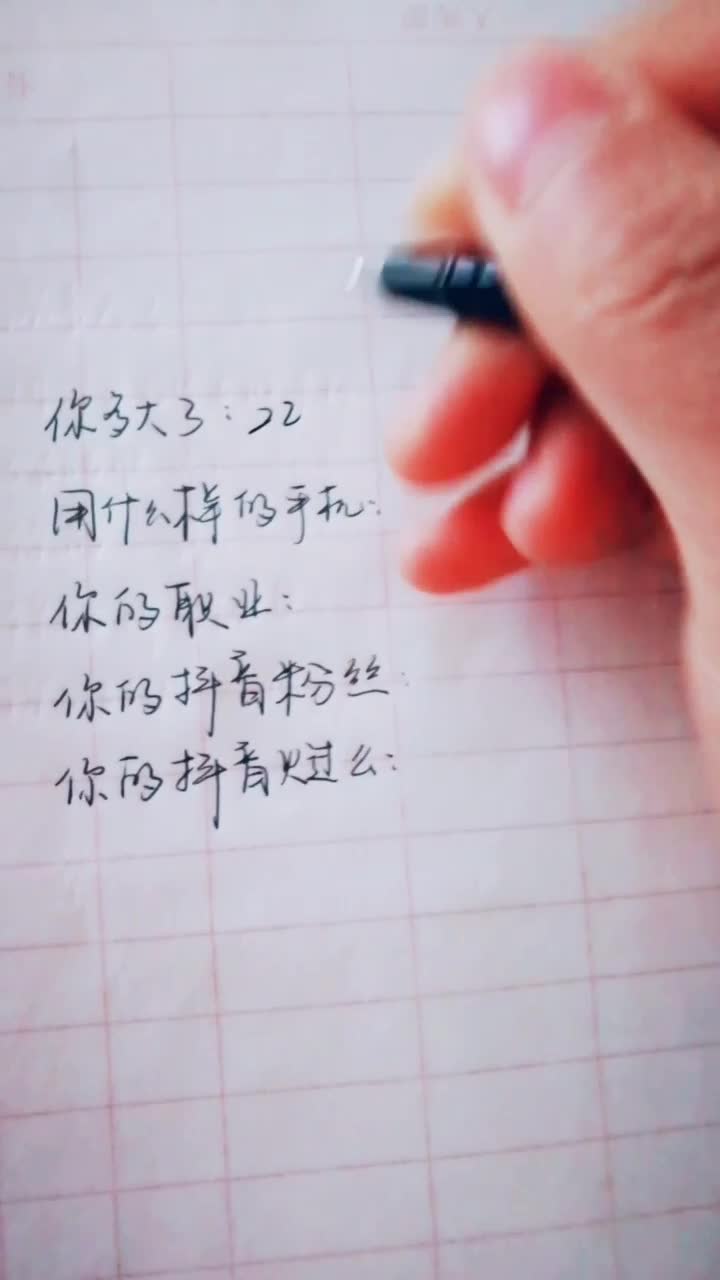 你多大了：22
用什么样的手机：
你的职业：
你的抖音粉丝：
你的抖音火过么：